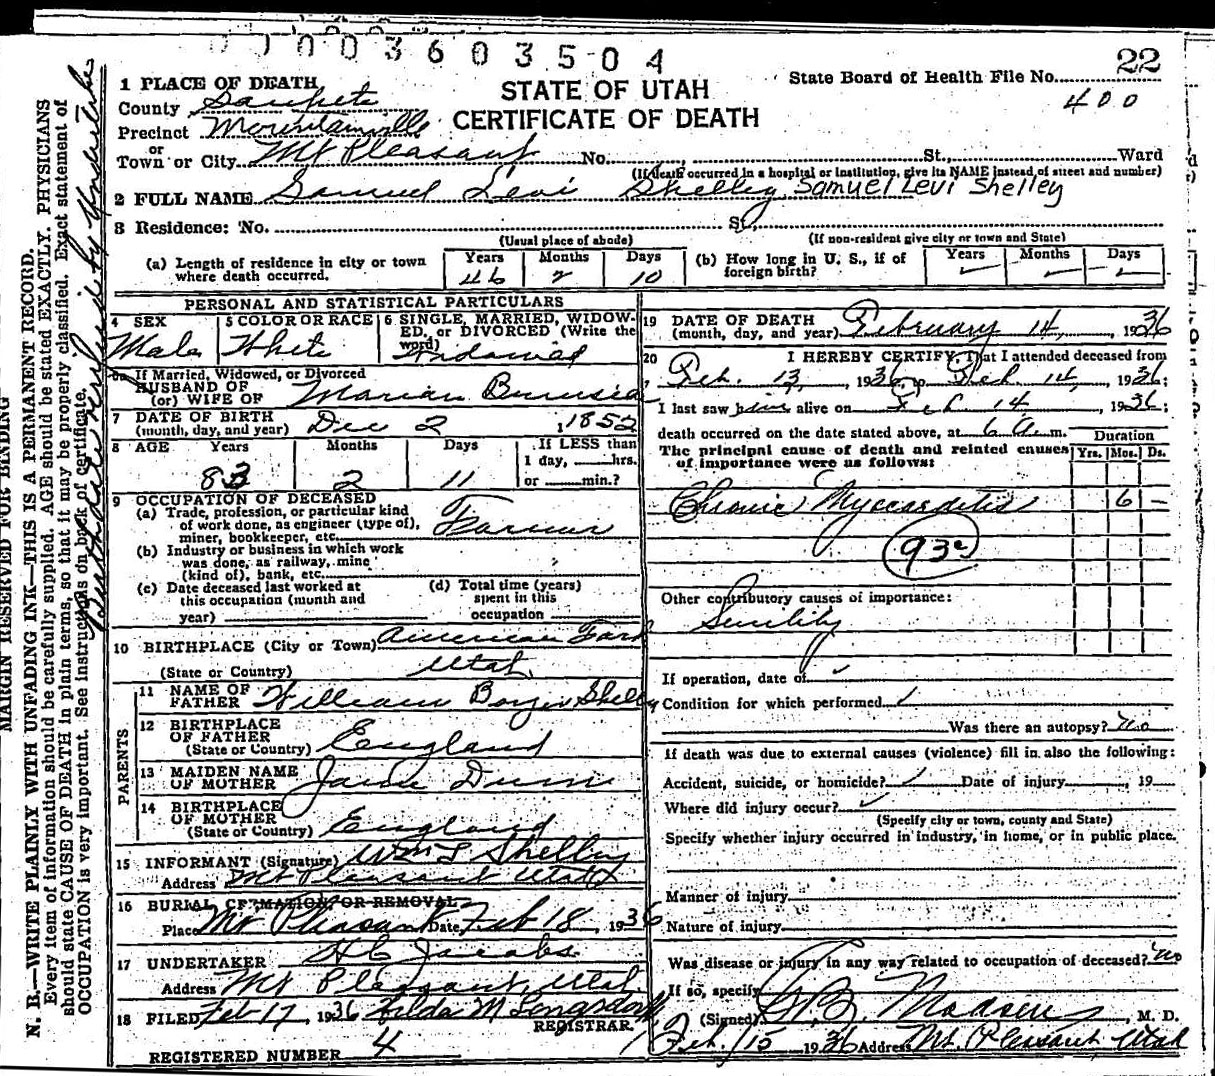 0 1 0 0 3 6 0 3 5 0 4
22
STATE OF UTAH
CERTIFICATE OF DEATH
State Board of Health File No.
400
1 PLACE OF DEATH
County Sanpete
Precinct Mountainville
or
Town or City Mt Pleasant No. , St., Ward
(If death occurred in a hospital or institution, give its NAME instead of street and number)
2 FULL NAME Samuel Levi Shelley Samuel Levi Shelley
3 Residence: No. St,
(Usual place of abode) (If non-resident give city or town and State)
(a) Length of residence in city or town where death occurred. Years 46 Months 2 Days 10
(b) How long in U. S., if of foreign birth? Years Months Days
PERSONAL AND STATISTICAL PARTICULARS
4 SEX Male
5 COLOR OR RACE White
6 SINGLE, MARRIED, WIDOWED, or DIVORCED (Write the word) Widowed
If Married, Widowed, or Divorced
HUSBAND OF
(or) WIFE OF Marian
7 DATE OF BIRTH
(month, day, and year) Dec 2 1852
8 AGE Years 83 Months 2 Days 11
If LESS than
1 day, hrs.
or min.?
9 OCCUPATION OF DECEASED
(a) Trade, profession, or particular kind
of work done, as engineer (type of),
miner, bookkeeper, etc. Farmer
(b) Industry or business in which work
was done, as railway, mine
(kind of), bank, etc.
(c) Date deceased last worked at
this occupation (month and
year)
(d) Total time (years)
spent in this
occupation
10 BIRTHPLACE (City or Town) American Fork
(State or Country) Utah
PARENTS
11 NAME OF
FATHER William Shelley
12 BIRTHPLACE
OF FATHER
(State or Country) England
13 MAIDEN NAME
OF MOTHER Jane Dunn
14 BIRTHPLACE
OF MOTHER
(State or Country) England
15 INFORMANT (Signature) Wm L Shelley
Address Mt Pleasant Utah
16 BURIAL, CREMATION, OR REMOVAL
Place Mt Pleasant Date Feb 18, 1936
17 UNDERTAKER H C Jacobs
Address Mt Pleasant, Utah
18 FILED Feb 17, 1936 Hilda M Longsdorf
REGISTRAR.
REGISTERED NUMBER 4
19 DATE OF DEATH
(month, day, and year) February 14, 1936
20 I HEREBY CERTIFY, That I attended deceased from
Feb. 13, 1936, to Feb 14, 1936;
I last saw him alive on Feb 14, 1936;
death occurred on the date stated above, at 6 A m.
The principal cause of death and related causes
of importance were as follows:
Duration
Yrs. Mos. Ds.
Chronic Myocarditis 6 –
93c
Other contributory causes of importance:
Senility
If operation, date of
Condition for which performed
Was there an autopsy? no
If death was due to external causes (violence) fill in also the following:
Accident, suicide, or homicide? Date of injury , 19
Where did injury occur?
(Specify city or town, county and State)
Specify whether injury occurred in industry, in home, or in public place.
Manner of injury
Nature of injury
Was disease or injury in any way related to occupation of deceased? no
If so, specify
(Signed) Madsen, M. D.
Feb. 15 1936 Address Mt. Pleasant Utah
MARGIN RESERVED FOR BINDING
N. B.—WRITE PLAINLY WITH UNFADING INK—THIS IS A PERMANENT RECORD.
Every item of information should be carefully supplied. AGE should be stated EXACTLY. PHYSICIANS
should state CAUSE OF DEATH in plain terms, so that it may be properly classified. Exact statement of
OCCUPATION is very important. See instructions on back of certificate.